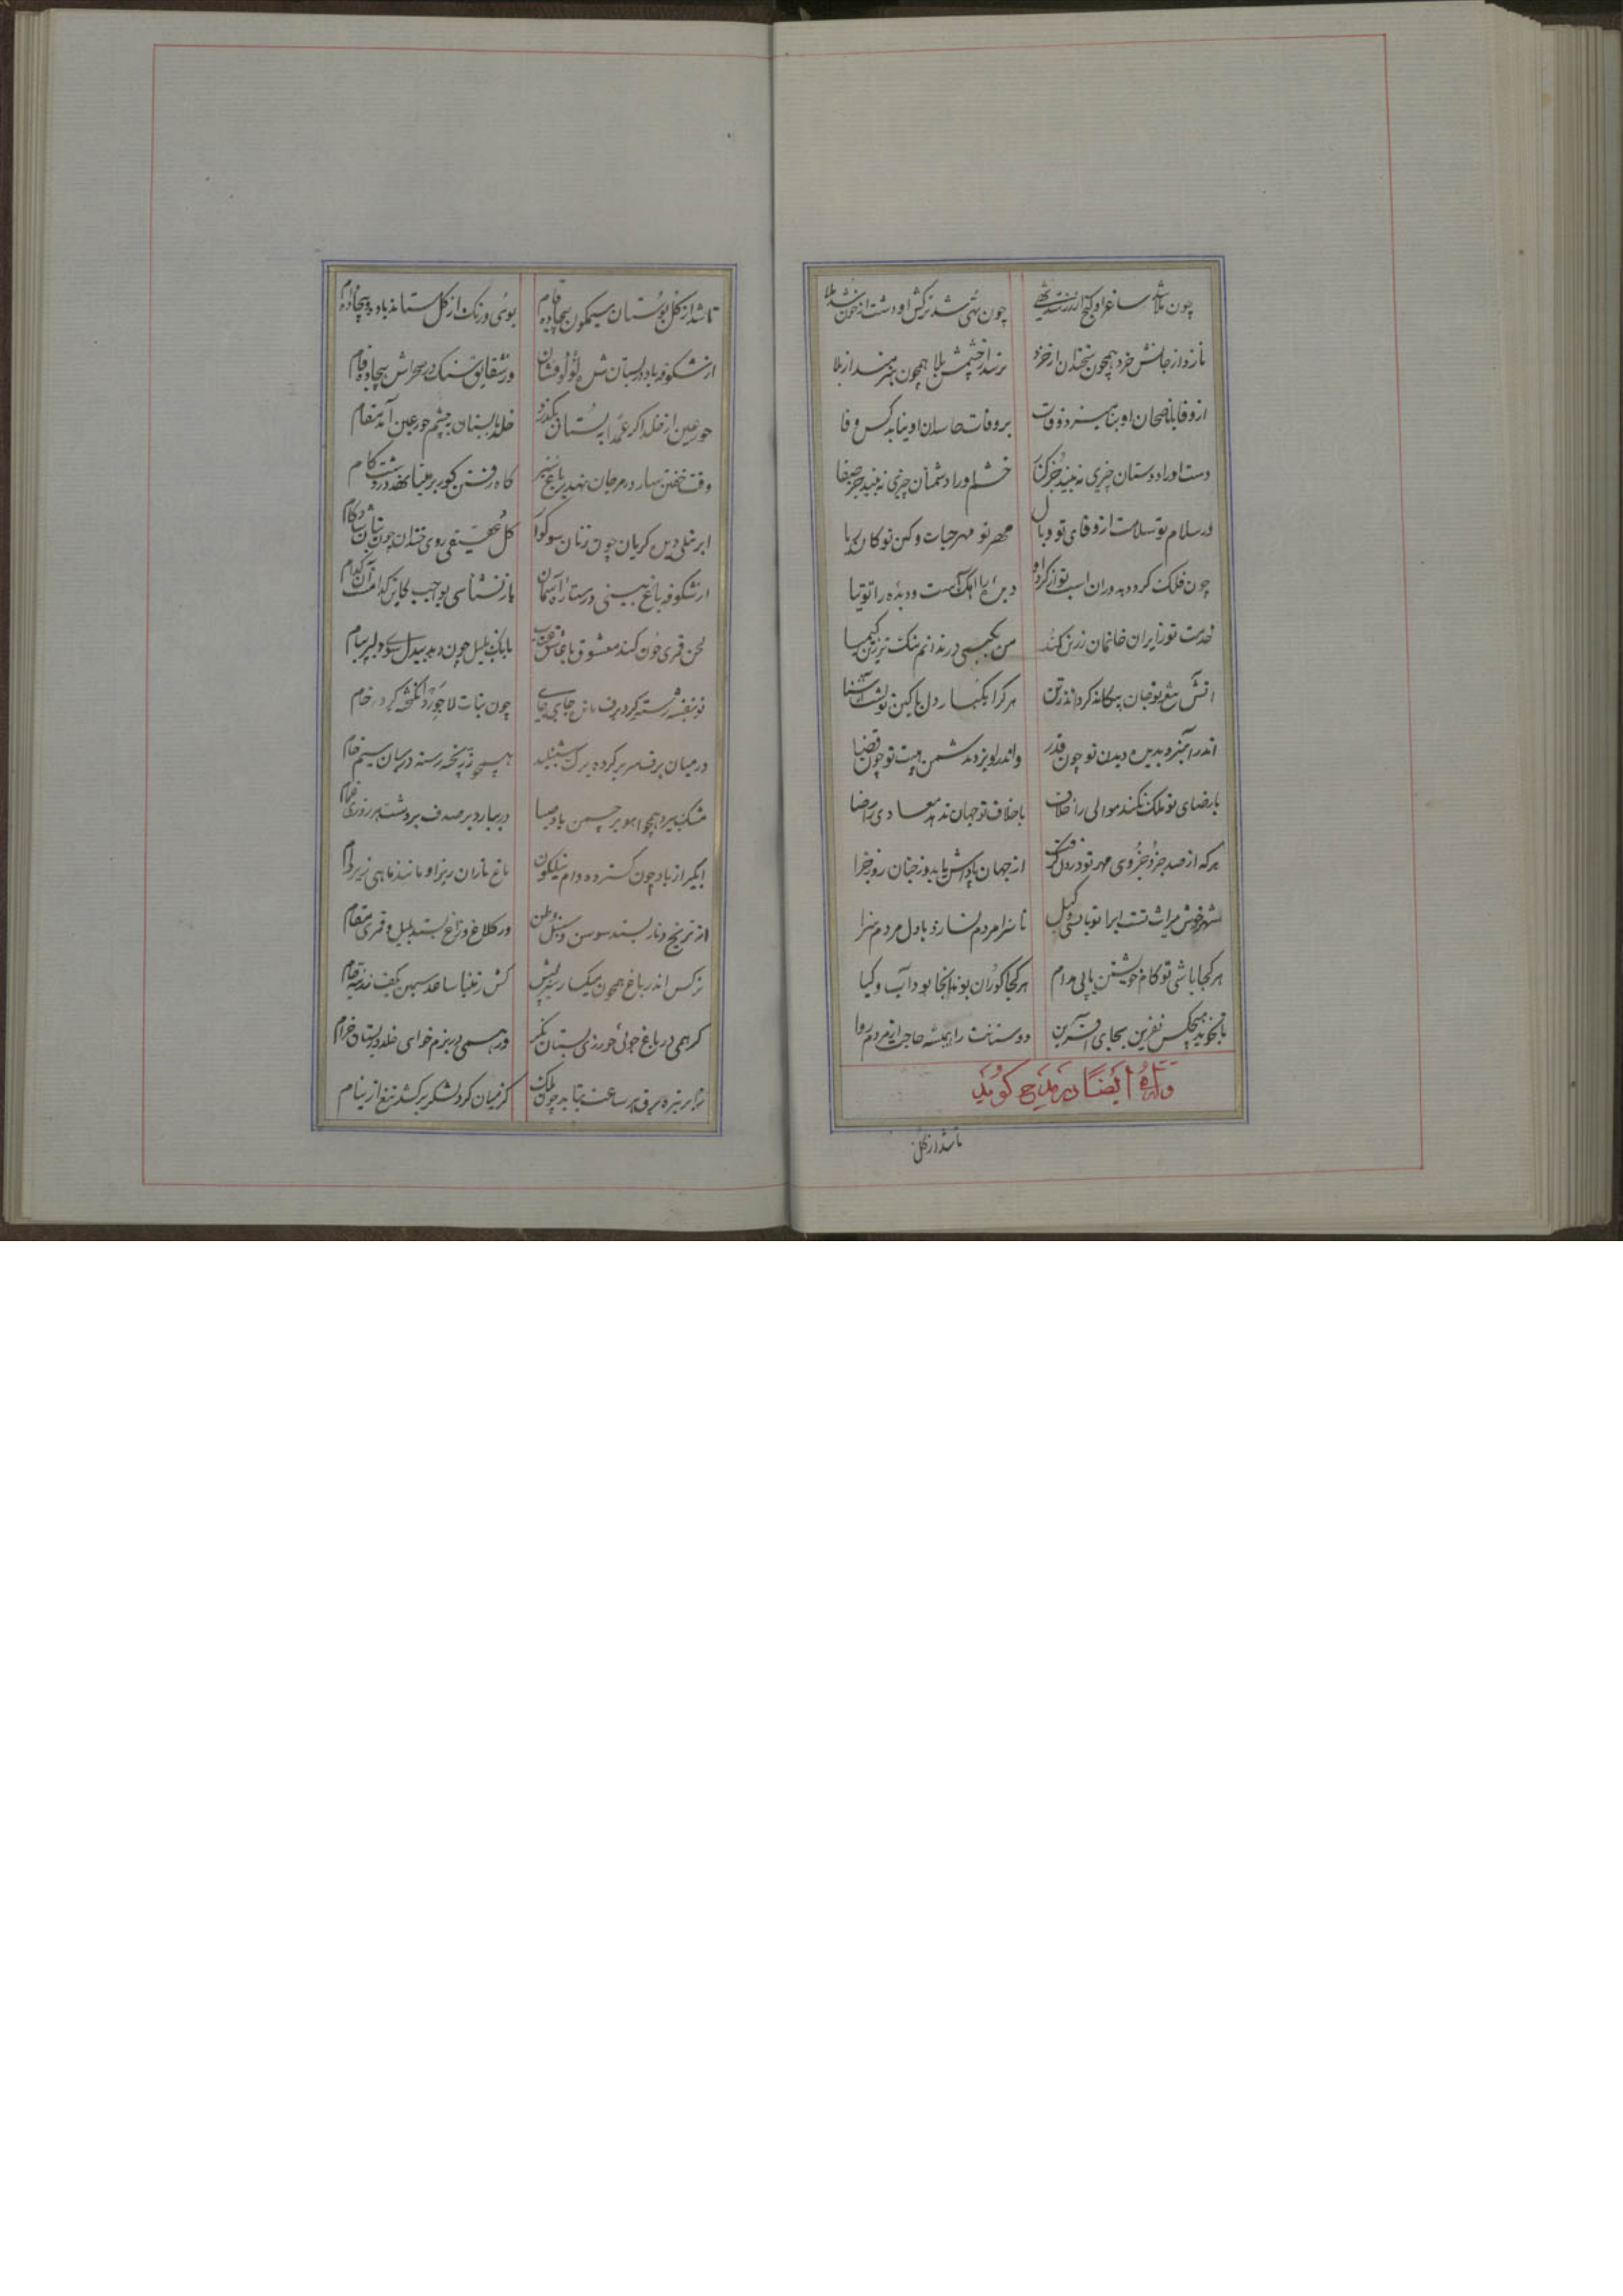 چون ملا شد ساغر او گنج از زر شد تهی چون تهی شد ترکش او دشت از خون شد ملا
نازد از جانش خرد همچون سخندان از خرد ترسد از خشمش بلا همچون هنرمند از بلا
از وفا با ناصحان او بنا میزد وفات بر وفات حاسدان او نیابد کس وفا
دست او را دوستان چیزی نه بیند جز کف خشم او را دشمنان چیزی نه بیند جز جفا
در سلام تو سلامت از وفای تو وبال مهر تو مهر حیات و کین تو کان
چون فلک گردد بدوران اسب تو از گرد راه دیده را توتیا
خدمت تو زایران خانمان زرین کند من بگیتی در ندانم نیک تر زین کیمیا
آتش تیغ تو جان بیگانه کرد اندر تن هر که را یکبار دل با کین تو گشت آشنا
اندر آمیزد بدین دیدن تو چون قدر واندر آویزد بدشمن هیبت تو چون قضا
با رضای تو ملک نکند موالی را خلاف با خلاف تو جهان ندهد معادی را رضا
هر که از صد جزو جزوی مهر تو در دل گرفت از جهان پاداش یابد وز جنان روز جزا
شهر خویش میراث تست ایرا تو باشی وکیل ناسزا مردم نسازد با دل مردم سزا
هر کجا باشی تو کام خویشتن یابی مدام هر کجا گوران بوند آنجا بود آب و گیا
تا نخوید هیچکس نفرین بجای آفرین دوستانت را همیشه حاجت از مردم روا
وله ایضا در مدیح گوید
تا شد از گل
تا شد از گل بوستان سیمگون بیجاده فام بوی و رنگ از گل ستاند باد و بیجاده وام
از شکوفه باد در بستان شده لؤلؤ فشان وز شقایق سنگ در صحراش بیجاده فام
حور عین از خلد اگر عمدا به بستان بگذرد خلد با بستان بچشم حور عین آید مقام
وقت خفتن بسار در مرجان نهد بر باغ سر گاه رفتن گور بر مینا نهد در دشت گام
ابر نیلی گریان چون زنان سوگوار گل عقیقی روی خندان چون بتان شادکام
از شکوفه باغ بینی در ستاره آسمان باز نشناسی بواجب کاین کدامست آن کدام
لحن قمری چون کند معشوق با عاشق عتاب بانگ بلبل چون دهد بیدل سوی دلبر پیام
نو بنفشه رسته گرد برف جای جای چون نبات لاجورد انگیخته گرد رخام
در میان برف سر بر کرده برگ شنبلید همچو زر پخته رسته در میان سیم خام
مشک بیزد همچو آهو بر چمن باد صبا در ببارد بر صدف بر دشت هر روزی غمام
آبگیر از باد چون گسترده دام نیلگون باغ باران ریز او مانند ماهی زیر دام
از ترنج و نار بستند سوسن و سنبل وطن ور کلاغ و زاغ بستند بلبل و قمری مقام
نرگس اندر باغ همچون میگسار کش ز مینا ساعد سیمین بکف زرینه جام
گر همی در باغ جویی حور زی بستان نگر ور همی در بزم خواهی خلد در بستان خرام
ز ابر تیره برق هر ساعت بتابد چون ملک کز میان گرد لشکر برکشد تیغ از نیام